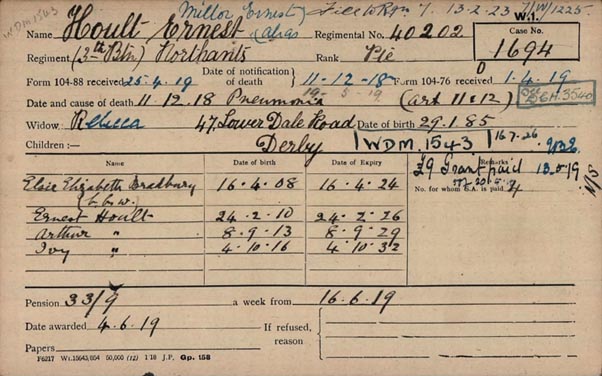 WDM1543
Millor Ernest) File to Rgn 7. 13-2-23 7/W/1225.
W.1.
Name Hoult Ernest (alias Regimental No. 40202
Case No.
1694
Regiment (3rd Btn) Northants Rank Pte
Form 104-88 received 25.4.19 Date of notification of death } 11-12-18 Form 104-76 received 1.4.19
19- 5-19
Date and cause of death 11.12.18 Pneumonia (art 11 & 12) 36H.3540
Widow Rebecca 47, Lower Dale Road Date of birth 29.1.85
Children:— Derby WDM.1543 16.7.26
Name Date of birth Date of Expiry Remarks
Elsie Elizabeth Bradbury 16.4.08 16.4.24 £9 Grant paid 13.5.19
(b.b.w.) No. for whom S.A. is paid
Ernest Hoult 24.2.10 24.2.26
Arthur " 8.9.13 8.9.29
Ivy " 4.10.16 4.10.32
Pension 33/9 a week from 16.6.19
Date awarded 4.6.19 If refused, reason
Papers
F6217 Wt.15643,654 50,000 (12) 1/18 J.P. Gp. 158